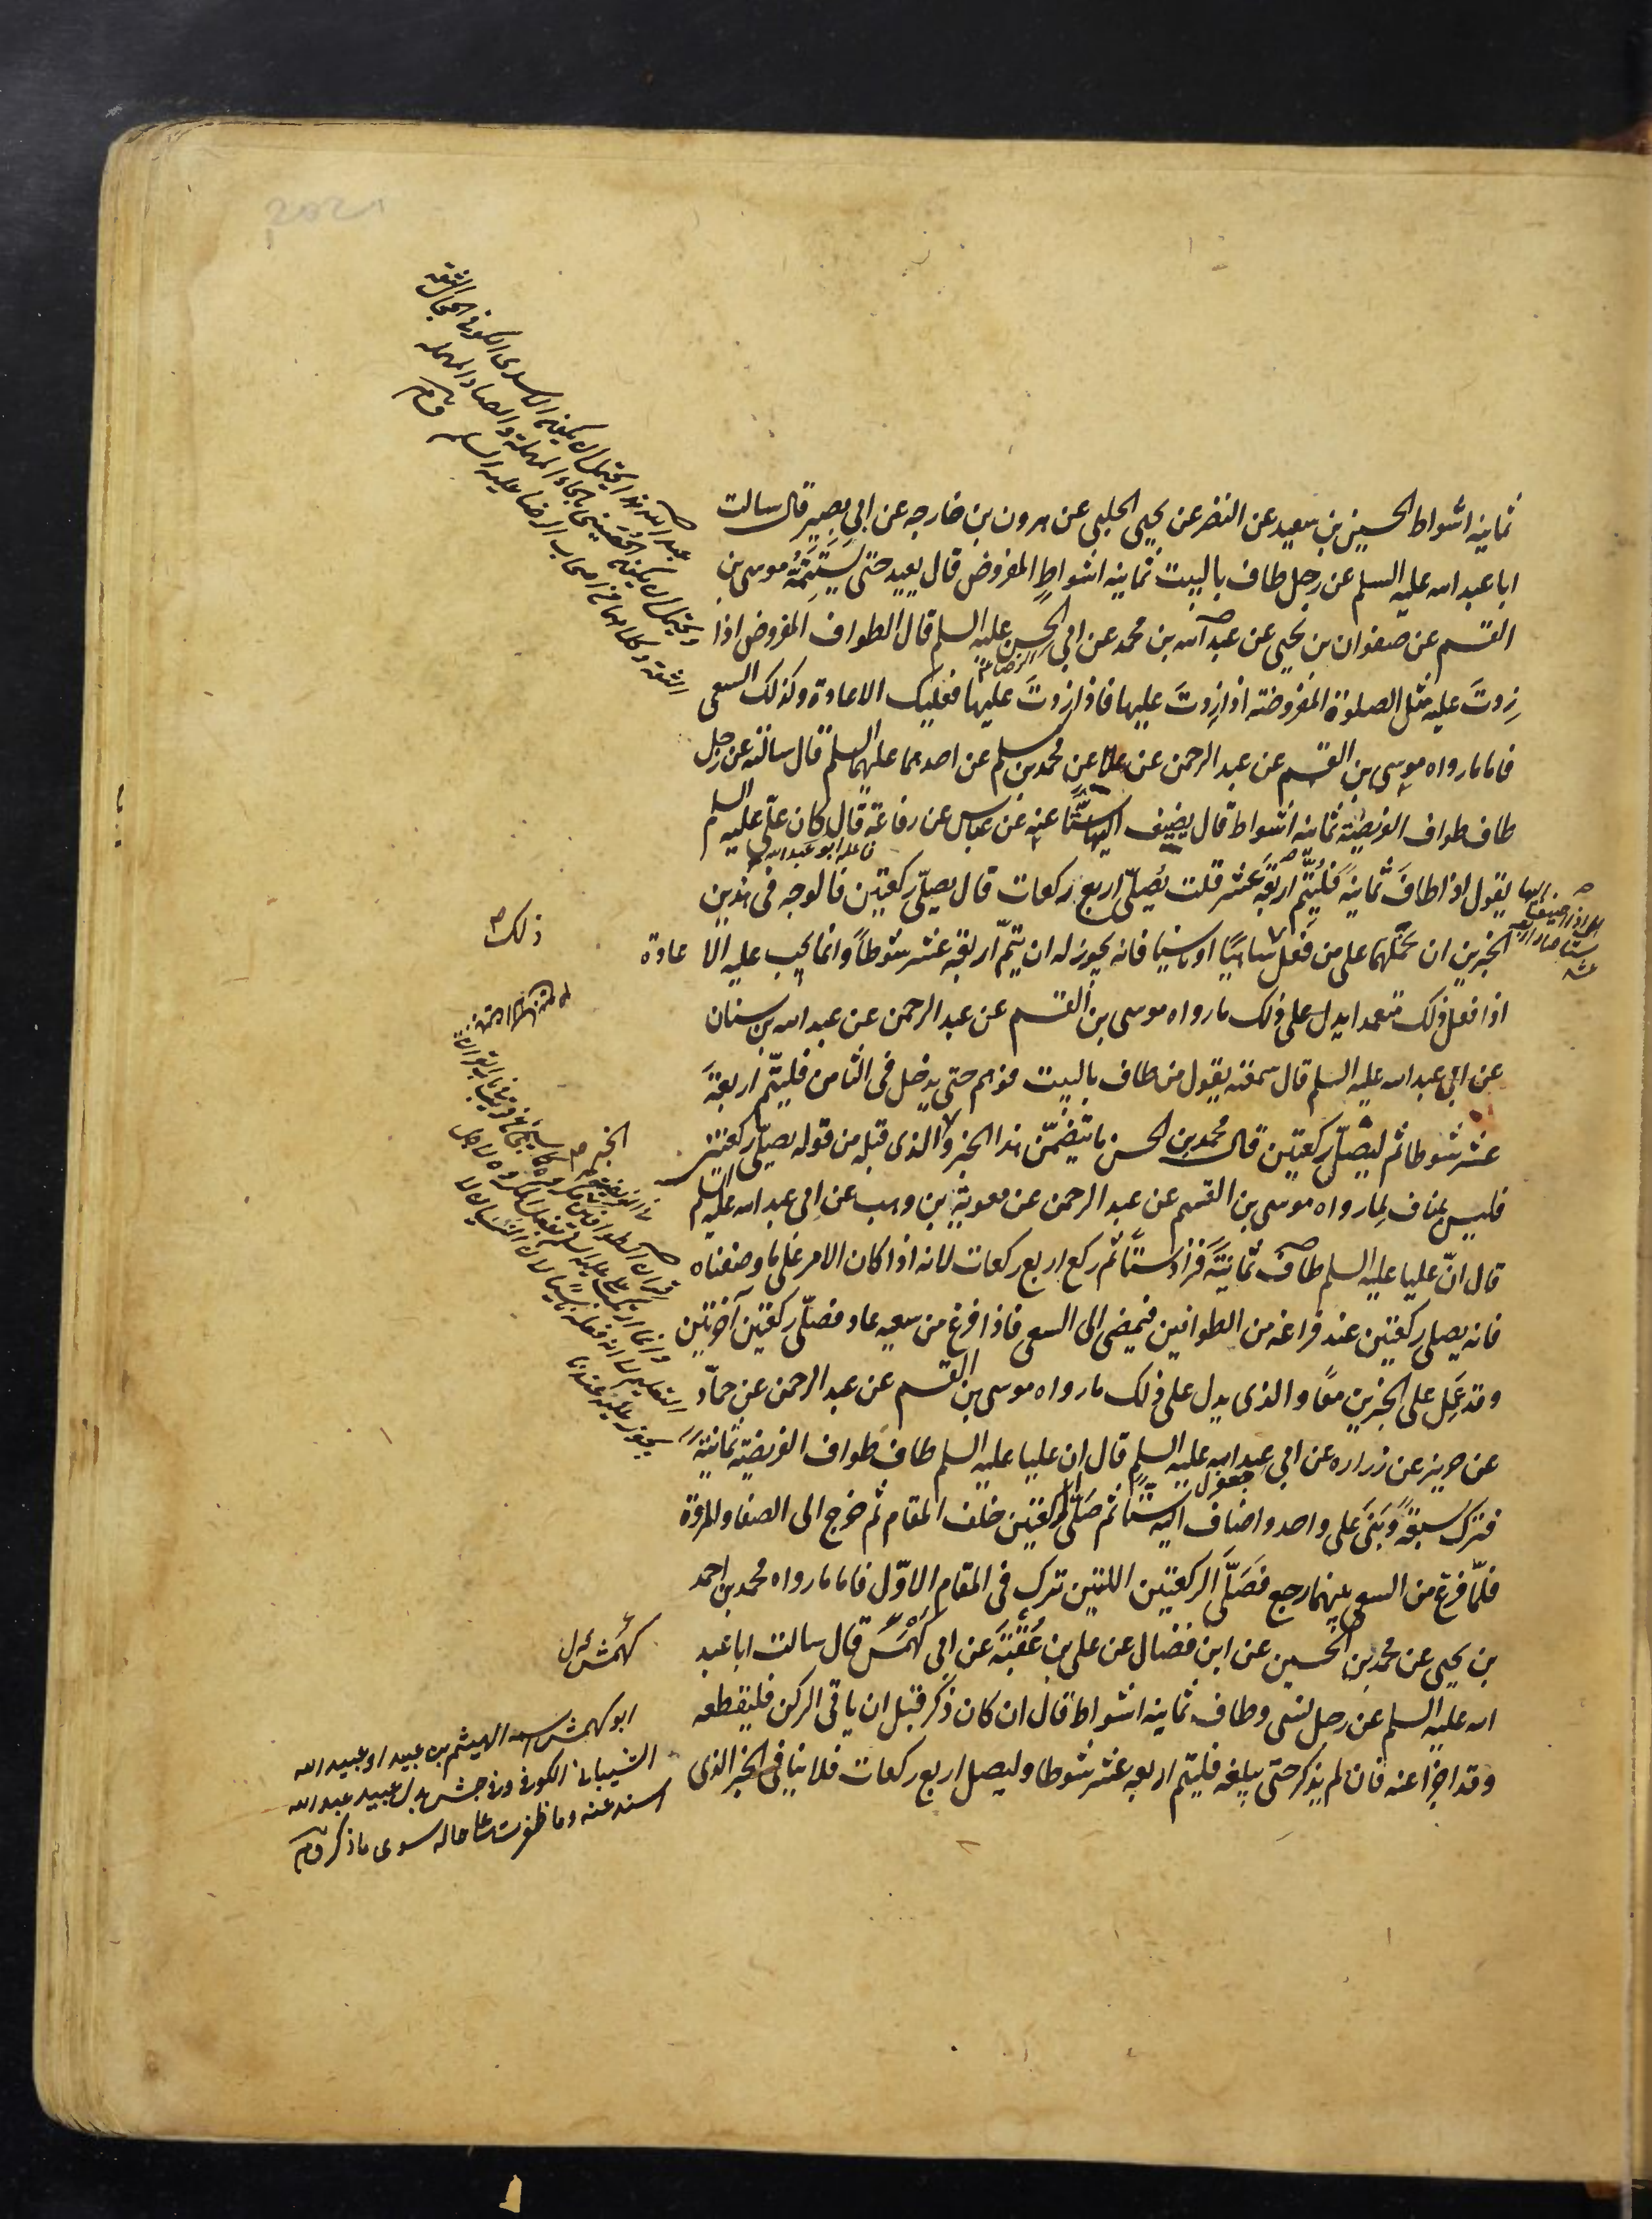 ثمانية اشواط الحسين بن سعيد عن النضر عن يحيى الحلبى عن هرون بن خارجه عن ابي بصير قال سالت
ابا عبد الله عليه السلم عن رجل طاف بالبيت ثمانيه اشواطٍ المفروض قال يعيد حتى يَسْتَتِمَّهُ موسى بن
القسم عن صفوان بن يحيى عن عبد الله بن محمد عن ابي الحسن عليه السلم قال الطواف المفروض اذا
زِدتَ عليه مثل الصلوة المفروضته اذا زِدتَ عليها فاذا زدتَ عليها فعليك الاعادة وكذلك السعى
فاما مارواه موسى بن القسم عن عبد الرحمن عن علا عن محمد بن مسلم عن احدهما عليهما السلم قال سالته عن رجل
طاف طواف الفريضة ثمانيه اشواط قال يضيف اليها ستًّا عنه عن عباس عن رفاعة قال كان عليّ عليه السلم
يقول اذا طافَ ثمانيةً فليُتِمّ اربعةَ عشر قلت يُصلّى اربع ركعات قال يصلّى ركعتين فالوجه فى هذين
الخبرين ان نحملهما على من فَعَل ساهيًا او ناسيًا فانه يجوز له ان يتمّ اربعة عشر شوطاً وانما يجب عليه الاعادة
اذا فعل ذلك متعمدا يدل على ذلك مارواه موسى بن القسم عن عبد الرحمن عن عبد الله بن سنان
عن ابي عبد الله عليه السلم قال سمعته يقول من طاف بالبيت فوهم حتى يدخل فى الثامن فليتمّ اربعةَ
عشر شوطا ثم ليصلّ ركعتين قال محمد بن الحسن ما يتضمّن هذا الخبر والذى قبله من قوله يصلّى ركعتين
فليس بمناف لِما رواه موسى بن القسم عن عبد الرحمن عن معوية بن وهب عن ابى عبد الله عليه السلم
قال انّ عليا عليه السلم طافَ ثمانيَةً فزادَ ستًّا ثم ركع اربع ركعات لانه اذا كان الامر على ما وصفناه
فانه يصلى ركعتين عند فراغه من الطوافين فيمضى الى السعى فاذا فرغ من سعيه عاد فصلّى ركعتين اخرتين
وقد عَمِل على الخبرين معًا والذى يدل على ذلك مارواه موسى بن القسم عن عبد الرحمن عن حمّاد
عن حريز عن زراره عن ابي عبد الله عليه السلم قال ان عليا عليه السلم طاف طواف الفريضة ثمانيةً
فترك سبعةً وبَنَى على واحد واضاف اليه ستًّا ثم صَلّى ركعتين خلف المقام ثم خرج الى الصفا والمروة
فلمّا فرغ من السعى بينهما رجع فصَلّى الركعتين اللتين ترك فى المقام الاوّل فاما مارواه محمد بن احمد
بن يحيى عن محمد بن الحسين عن ابن فضال عن على بن عُقْبَة عن ابى كَهْمَس قال سالت ابا عبد
الله عليه السلم عن رجل نسى وطاف ثمانيه اشواط قال ان كان ذكر قبل ان ياتى الركن فليقطعه
وقد اجزا عنه فان لم يذكر حتى يبلغه فليتم اربعه عشر شوطا وليصل اربع ركعات فلا ينافى الخبر الذى
عبد الله هذا يحتمل ان يكون الاسدى الكوفى الحجال الثقة
ويحتمل ان يكون الحُضَينى بالحاء المهملة والضاد المعجمة
الثقة وكلاهما من اصحاب الرضا عليه السلم
ذلك
الخبر
كهمش
ابو كهمش اسمه الهيثم بن عبيد او عبيد الله
الشيبانى الكوفى وفى جش بدل عبيد عبد الله
اسند عنه وما ظفرت على حاله سوى ما ذكر